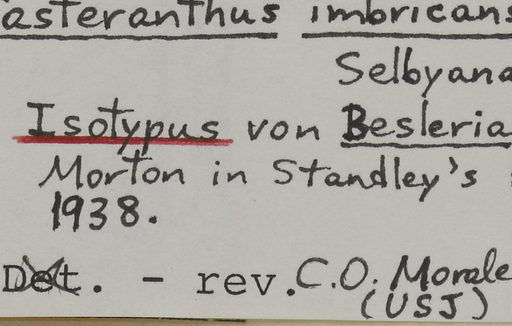 asteranthus imbricans
Selbyana
Isotypus von Besleria
Morton in Standley's
1938.
Det. - rev. C.O. Morale
(USJ)